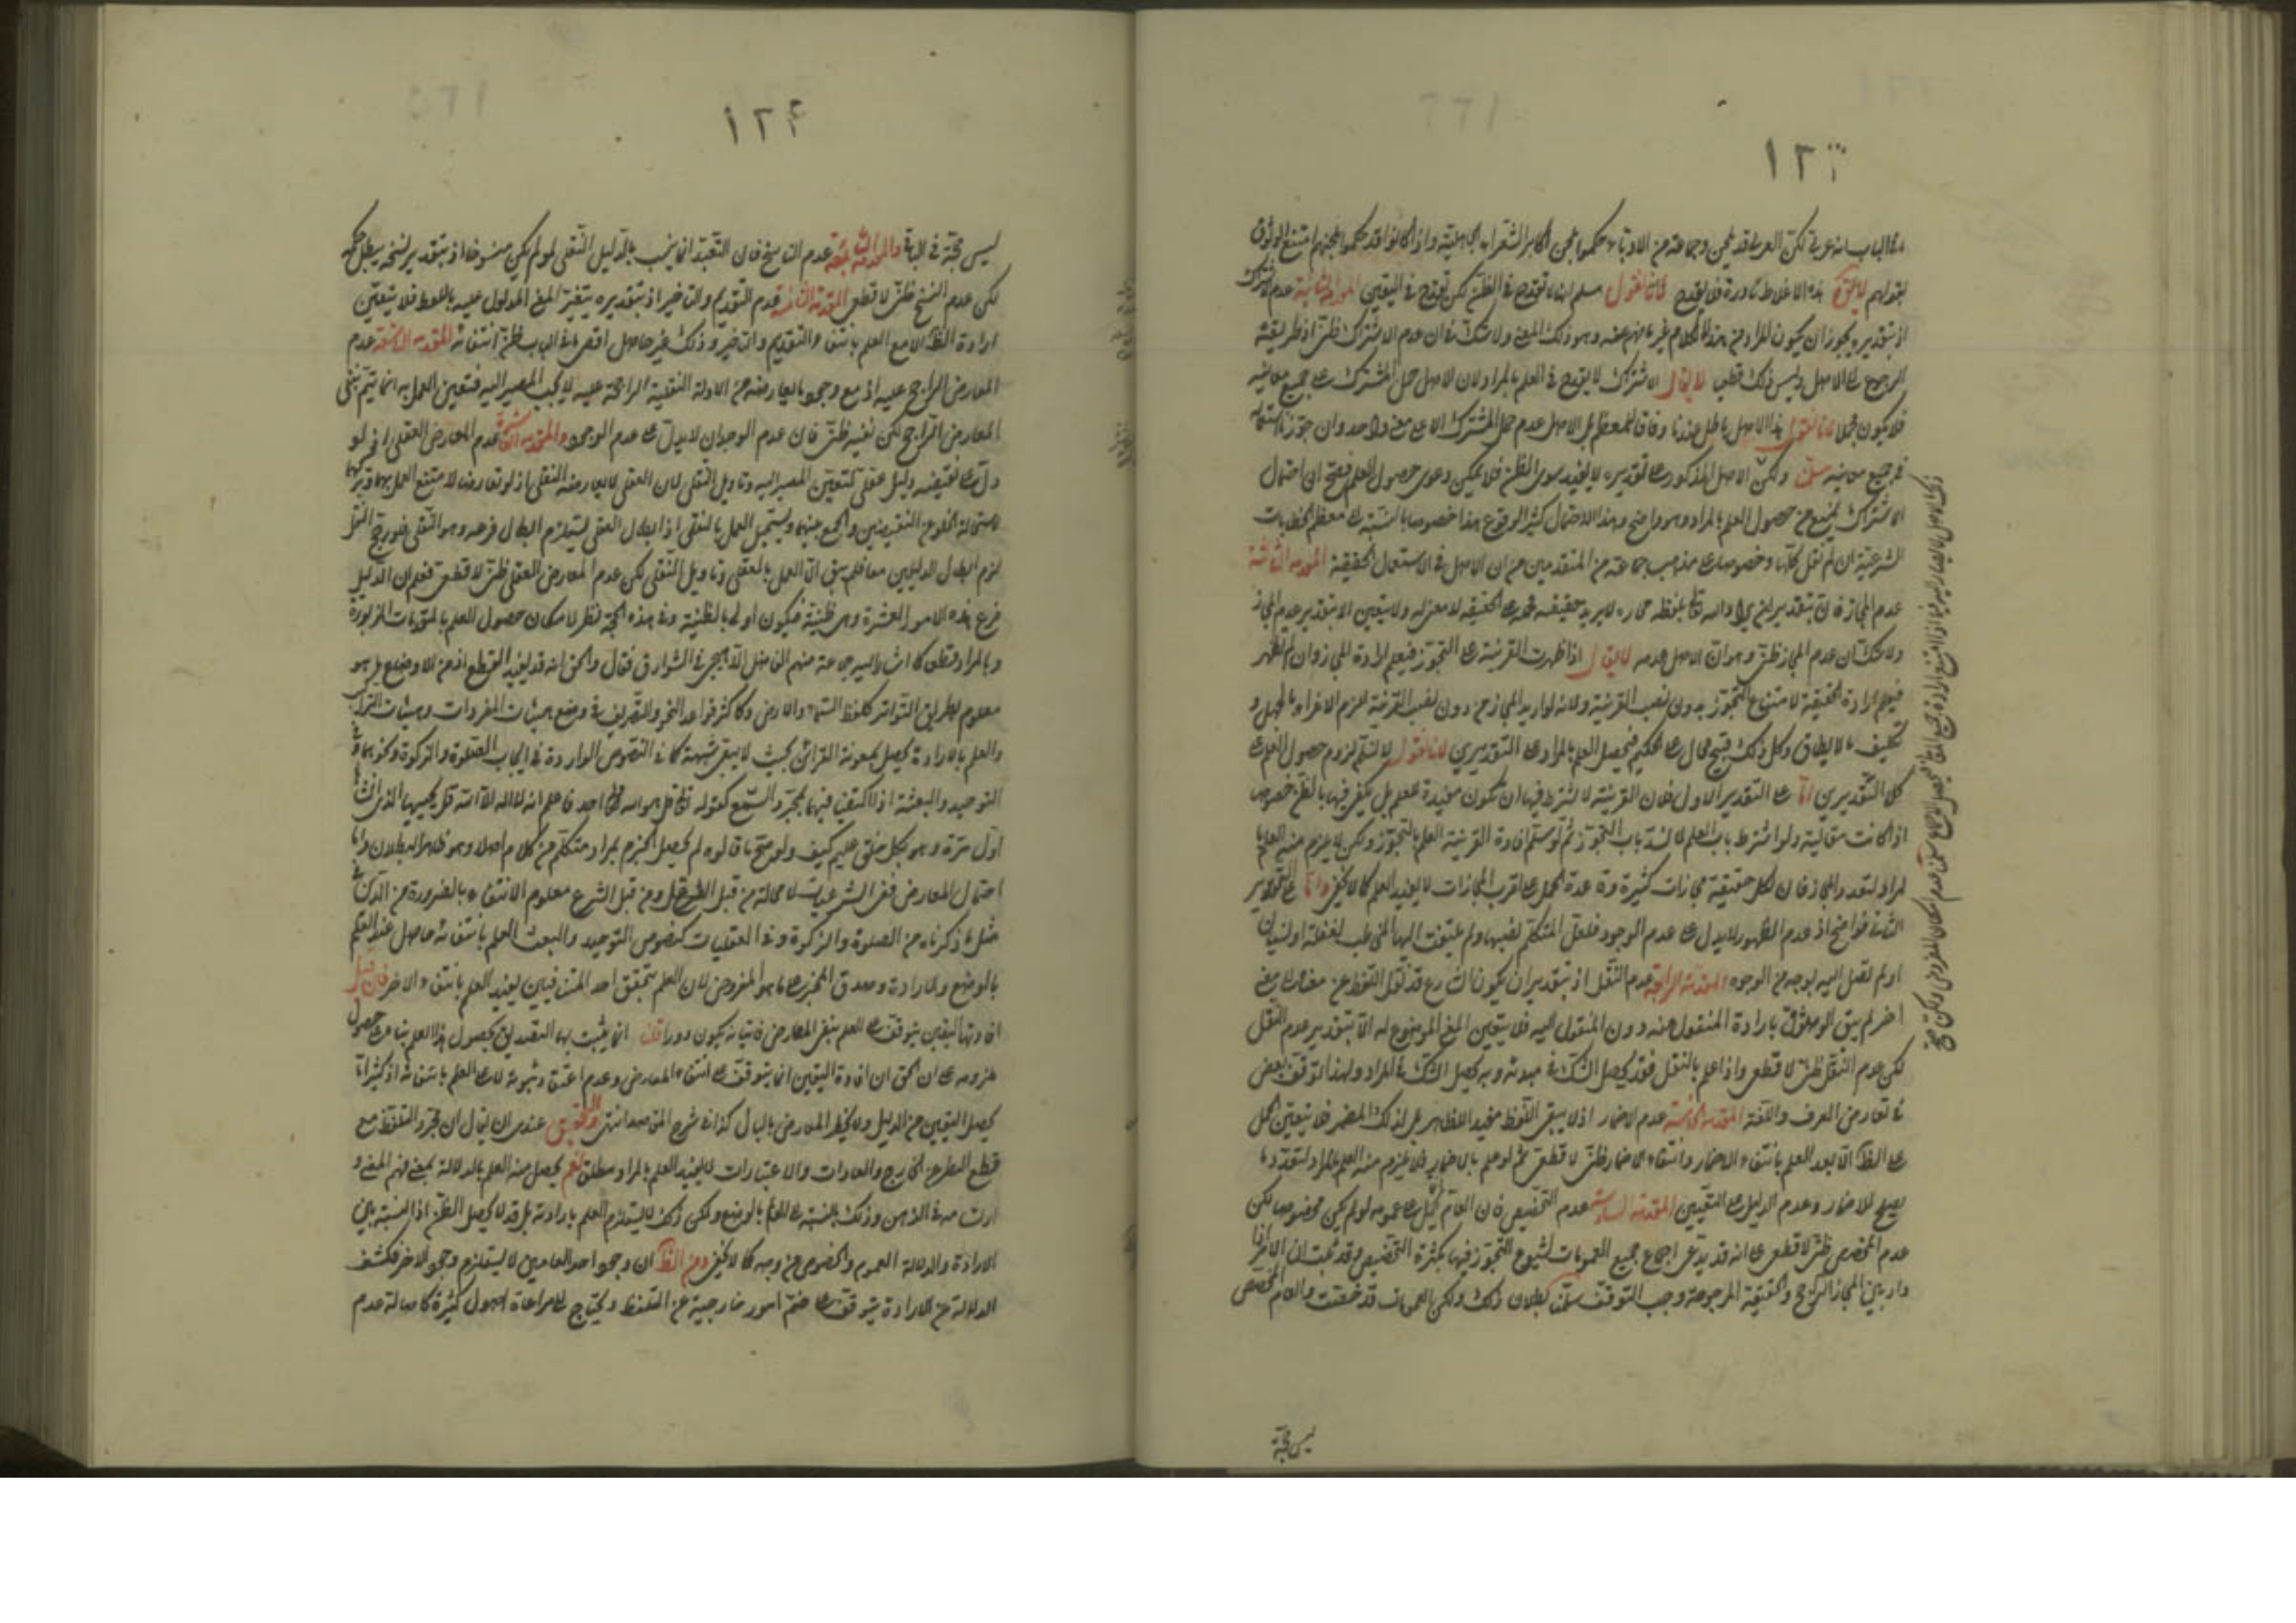 ١٢٣
الباب انه عربي لكن العربي قد يلحن وجماعة من الادباء حكموا بلحن اكابر الشعراء الجاهلية واذا كانوا قد حكموا بلحنهم امتنع الوثوق
بقولهم لا يقال هذه الاغلاط نادرة فلا يقدح لانا نقول مسلم انها لا تقدح في الظن لكن تقدح في اليقين المقدمة الثانية عدم الاشتراك
اذ بتقديره يجوز ان يكون المراد من هذا الكلام غير ما نفهم منه وهو ذلك المعنى ولا شك في ان عدم الاشتراك ظني اذ طريقته
الرجوع الى الاصل وليس ذلك قطعيا لا يقال الاشتراك لا يقدح في العلم بالمراد لان الاصل حمل المشترك على جميع معانيه
فلا يكون مجملا لانا نقول هذا الاصل باطل عندنا وفاقا للمعظم بل الاصل عدم حمل المشترك الا على معنى واحد وان جوزنا استعماله
في جميع معانيه سلمنا ولكن الاصل المذكور على تقديره لا يفيد سوى الظن فلا يمكن دعوى حصول العلم فصح ان احتمال
الاشتراك يمنع من حصول العلم بالمراد وهو واضح وهذا الاحتمال كثير الوقوع هذا خصوصا بالنسبة الى معظم الخطابات
الشرعية ان لم نقل كلها وخصوصا على مذهب جماعة من المتقدمين من ان الاصل في الاستعمال الحقيقة المقدمة الثالثة
عدم المجاز فان بتقدير
ولا شك ان عدم المجاز ظني وهو ان الاصل عدمه لا يقال اذا ظهرت القرينة على التجوز فيعلم ارادة المجاز وان لم تظهر
فيعلم ارادة الحقيقة لامتناع التجوز بدون نصب القرينة ولانه لو اريد المجاز من دون نصب القرينة للزم الاغراء بالجهل و
تكليف ما لا يطاق وكل ذلك قبيح محال على الحكيم فيحصل العلم بالمراد على التقديرين لانا نقول لا نسلم لزوم حصول العلم على
كلا التقديرين اما على التقدير الاول فلان القرينة لا يشترط فيها ان تكون مفيدة للعلم بل يكفي فيها بالظن خصوصا
اذا كانت مقالية ولو اشترط باب العلم لانسد باب التجوز ثم لو سلم افادة القرينة العلم بالتجوز ولكن لا يلزم منه العلم
المراد لتعدد المجاز فان لكل حقيقة مجازات كثيرة وقاعدة الحمل على اقرب المجازات لا يفيد العلم كما لا يخفى واما على التقدير
الثاني فواضح اذ عدم الظهور لا يدل على عدم الوجود فلعل المتكلم نصبها ولم يلتفت اليها المخاطب لغفلة او نسيان
او لم تصل اليه بوجه من الوجوه المقدمة الرابعة عدم النقل اذ بتقدير ان يكون الشارع قد نقل اللفظ عن معناه الى معنى
اخر لم يبق الوثوق بارادة المنقول عنه دون المنقول اليه فلا يتعين المعنى الموضوع له الا بتقدير عدم النقل
لكن عدم النقل ظني لا قطعي واذا علم بالنقل فقد يحصل الشك في مبدئه وبه يحصل الشك في المراد ولهذا توقف بعض
في تعارض العرف واللغة المقدمة الخامسة عدم الاضمار اذ لا يبقى اللفظ مفيدا للظاهر بل لذلك المضمر فلا يتعين الحمل
على الظ الا بعد العلم بانتفاء الاضمار وانتفاء الاضمار ظني لا قطعي ثم لو علم بالاضمار فلا يلزم منه العلم بالمراد لتعدد ما
يصلح للاضمار وعدم الدليل على التعيين المقدمة السادسة عدم التخصيص فان العام يحمل على عمومه لو لم يكن مخصوصا لكن
عدم المخصص ظني لا قطعي على انه قد يدعى اجماع جميع العمومات لشيوع التجوز فيها بكثرة التخصيص وقد ثبت ان الامر اذا
دار بين المجاز الراجح والحقيقة المرجوحة وجب التوقف سلمنا بطلان ذلك ولكن العمومات قد خصصت والعام المخصص
ليس حجة
١٢٤
ليس حجة في الباقي والمقدمة السابعة عدم الناسخ فان التعبد انما يجب بالدليل النقلي لو لم يكن منسوخا اذ بتقدير نسخه يبطل حكمه
لكن عدم النسخ ظني لا قطعي المقدمة الثامنة عدم التقديم والتاخير اذ بتقديره يتغير المعنى المدلول عليه باللفظ فلا يتعين
ارادة الظ الا مع العلم بانتفاء التقديم والتاخير وذلك غير حاصل اقصى ما في الباب ظن انتفائه المقدمة التاسعة عدم
المعارض الراجح عليه اذ مع وجود ما يعارضه من الادلة النقلية الراجحة عليه لا يجب المصير اليه فتعين العمل به انما يتم بنفي
المعارض الراجح لكن نفيه ظني فان عدم الوجدان لا يدل على عدم الوجود والمقدمة العاشرة عدم المعارض العقلي اذ لو
دل على نقيضه دليل عقلي لتعين المصير اليه وتاويل النقلي لان العقلي لا يعارضه النقلي اذ لو تعارضا لامتنع العمل بهما وتركهما
لاستحالة الخلو عن النقيضين والجمع بينهما ويستحيل العمل بالنقلي اذ ابطال العقلي يستلزم ابطال فرعه وهو النقلي فلو رجح النقل
لزم ابطال الدليلين معا فلم يبق الا العمل بالعقلي وتاويل النقلي لكن عدم المعارض العقلي ظني لا قطعي فعلم ان الدليل
فرع هذه الامور العشرة وهي ظنية فيكون اولى بالظنية وفي هذه الحجة نظر لامكان حصول العلم بالمقدمات المزبورة
وبالمراد قطعا كما اشار اليه جماعة منهم الفاضل اللاهيجي في الشوارق فقال والحق انه قد يفيد القطع اذ من الاوضاع ما هو
معلوم بطريق التواتر كلفظ السماء والارض وكاكثر قواعد النحو والتصريف في وضع هيئات المفردات وهيئات التراكيب
والعلم بالارادة يحصل بمعونة القرائن بحيث لا يبقى شبهة كما في النصوص الواردة في ايجاب الصلوة والزكوة ونحوهما وفي
التوحيد والبعثة اذا اكتفينا فيهما بمجرد السمع كقوله تعالى قل هو الله احد فاعلم انه لا اله الا الله قل يحييها الذي انشاها
اول مرة وهو بكل خلق عليم كيف ولو صح ما قالوه لم يحصل الجزم بمراد متكلم من كلام اصلا وهو ظاهر البطلان واما
احتمال المعارض ففي الشرعيات لا محالة من قبل الشرع ومن قبل الشرع معلوم الانتفاء بالضرورة من الدين في
مثل ما ذكرناه من الصلوة والزكوة وفي العقليات كنصوص التوحيد والبعث العلم بانتفائه حاصل عند العلم
بالوضع والارادة وصدق المخبر على ما هو المفروض لان العلم بتحقق احد المتنافيين يفيد العلم بانتفاء الاخر فان قيل
افادتها اليقين يتوقف على العلم بنفي المعارض فاثباته بها يكون دورا قلنا انما يثبت بها التصديق بحصول هذا العلم بناء على حصول
ملزومه على ان الحق ان افادة اليقين انما يتوقف على انتفاء المعارض وعدم اعتقاد ثبوته لا على العلم بانتفائه اذ كثيرا ما
يحصل اليقين من الدليل ولا يخطر المعارض بالبال كذا في شرح المقاصد انتهى والتحقيق عندي ان يقال ان مجرد اللفظ مع
قطع النظر عن الخارج والعادات والاعتبارات لا يفيد العلم بالمراد مطلقا نعم يحصل منه العلم بالدلالة بمعنى فهم المعنى و
ارتسامه في الذهن وذلك بالنسبة الى العالم بالوضع ولكن ذلك لا يستلزم العلم بارادته بل قد لا يحصل الظن اذ النسبة بين
الارادة والدلالة العموم والخصوص من وجه كما لا يخفى ومن الظ ان وجود احد العامين لا يستلزم وجود الاخر فكشف
الدلالة عن الارادة يتوقف على ضم امور خارجية عن اللفظ ويحتاج الى مراعاة اصول كثيرة كاصالة عدم